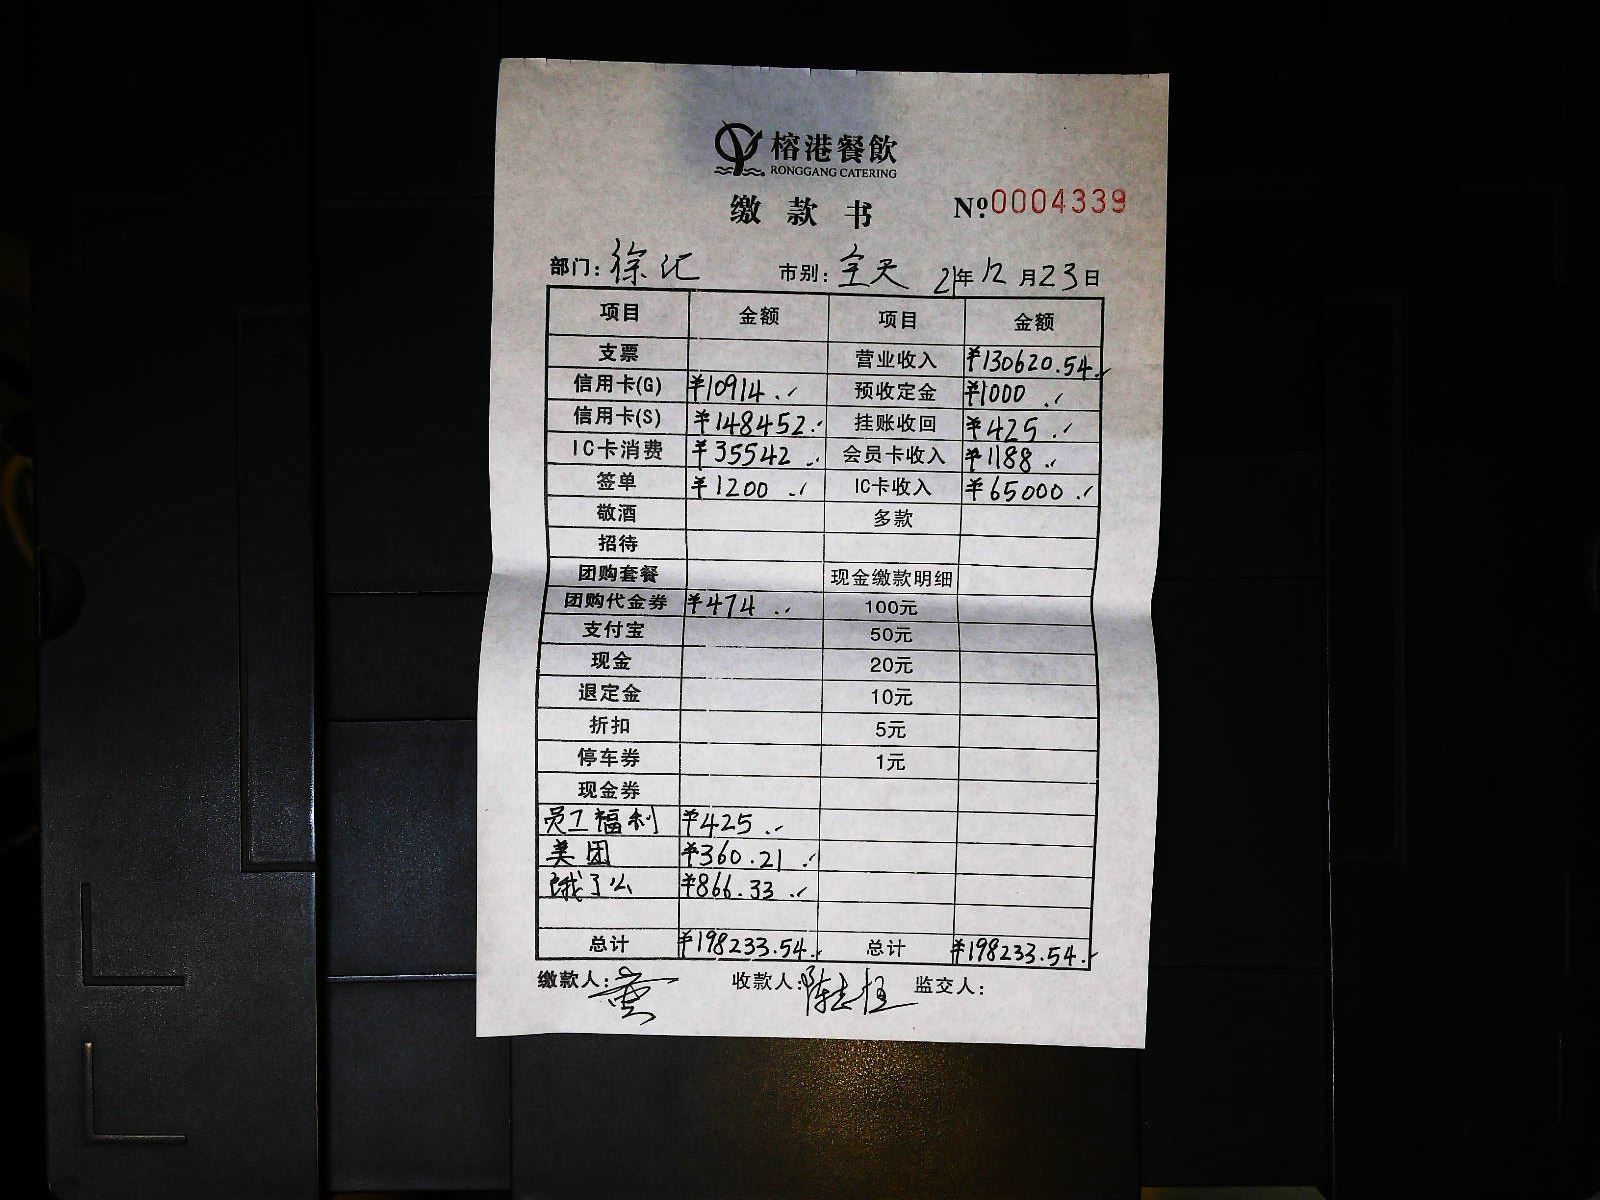 榕港餐飲
RONGGANG CATERING
缴款书 №0004339
部门：徐汇 市别：全天 21年12月23日
项目 金额 项目 金额
支票 营业收入 ¥130620.54
信用卡(G) ¥10914.- 预收定金 ¥1000.-
信用卡(S) ¥148452.- 挂账收回 ¥425.-
IC卡消费 ¥35542.- 会员卡收入 ¥1188.-
签单 ¥1200.- IC卡收入 ¥65000.-
敬酒 多款
招待
团购套餐 现金缴款明细
团购代金券 ¥474.- 100元
支付宝 50元
现金 20元
退定金 10元
折扣 5元
停车券 1元
现金券
员工福利 ¥425.-
美团 ¥360.21
饿了么 ¥866.33
总计 ¥198233.54 总计 ¥198233.54
缴款人： 收款人：陈志恒 监交人：